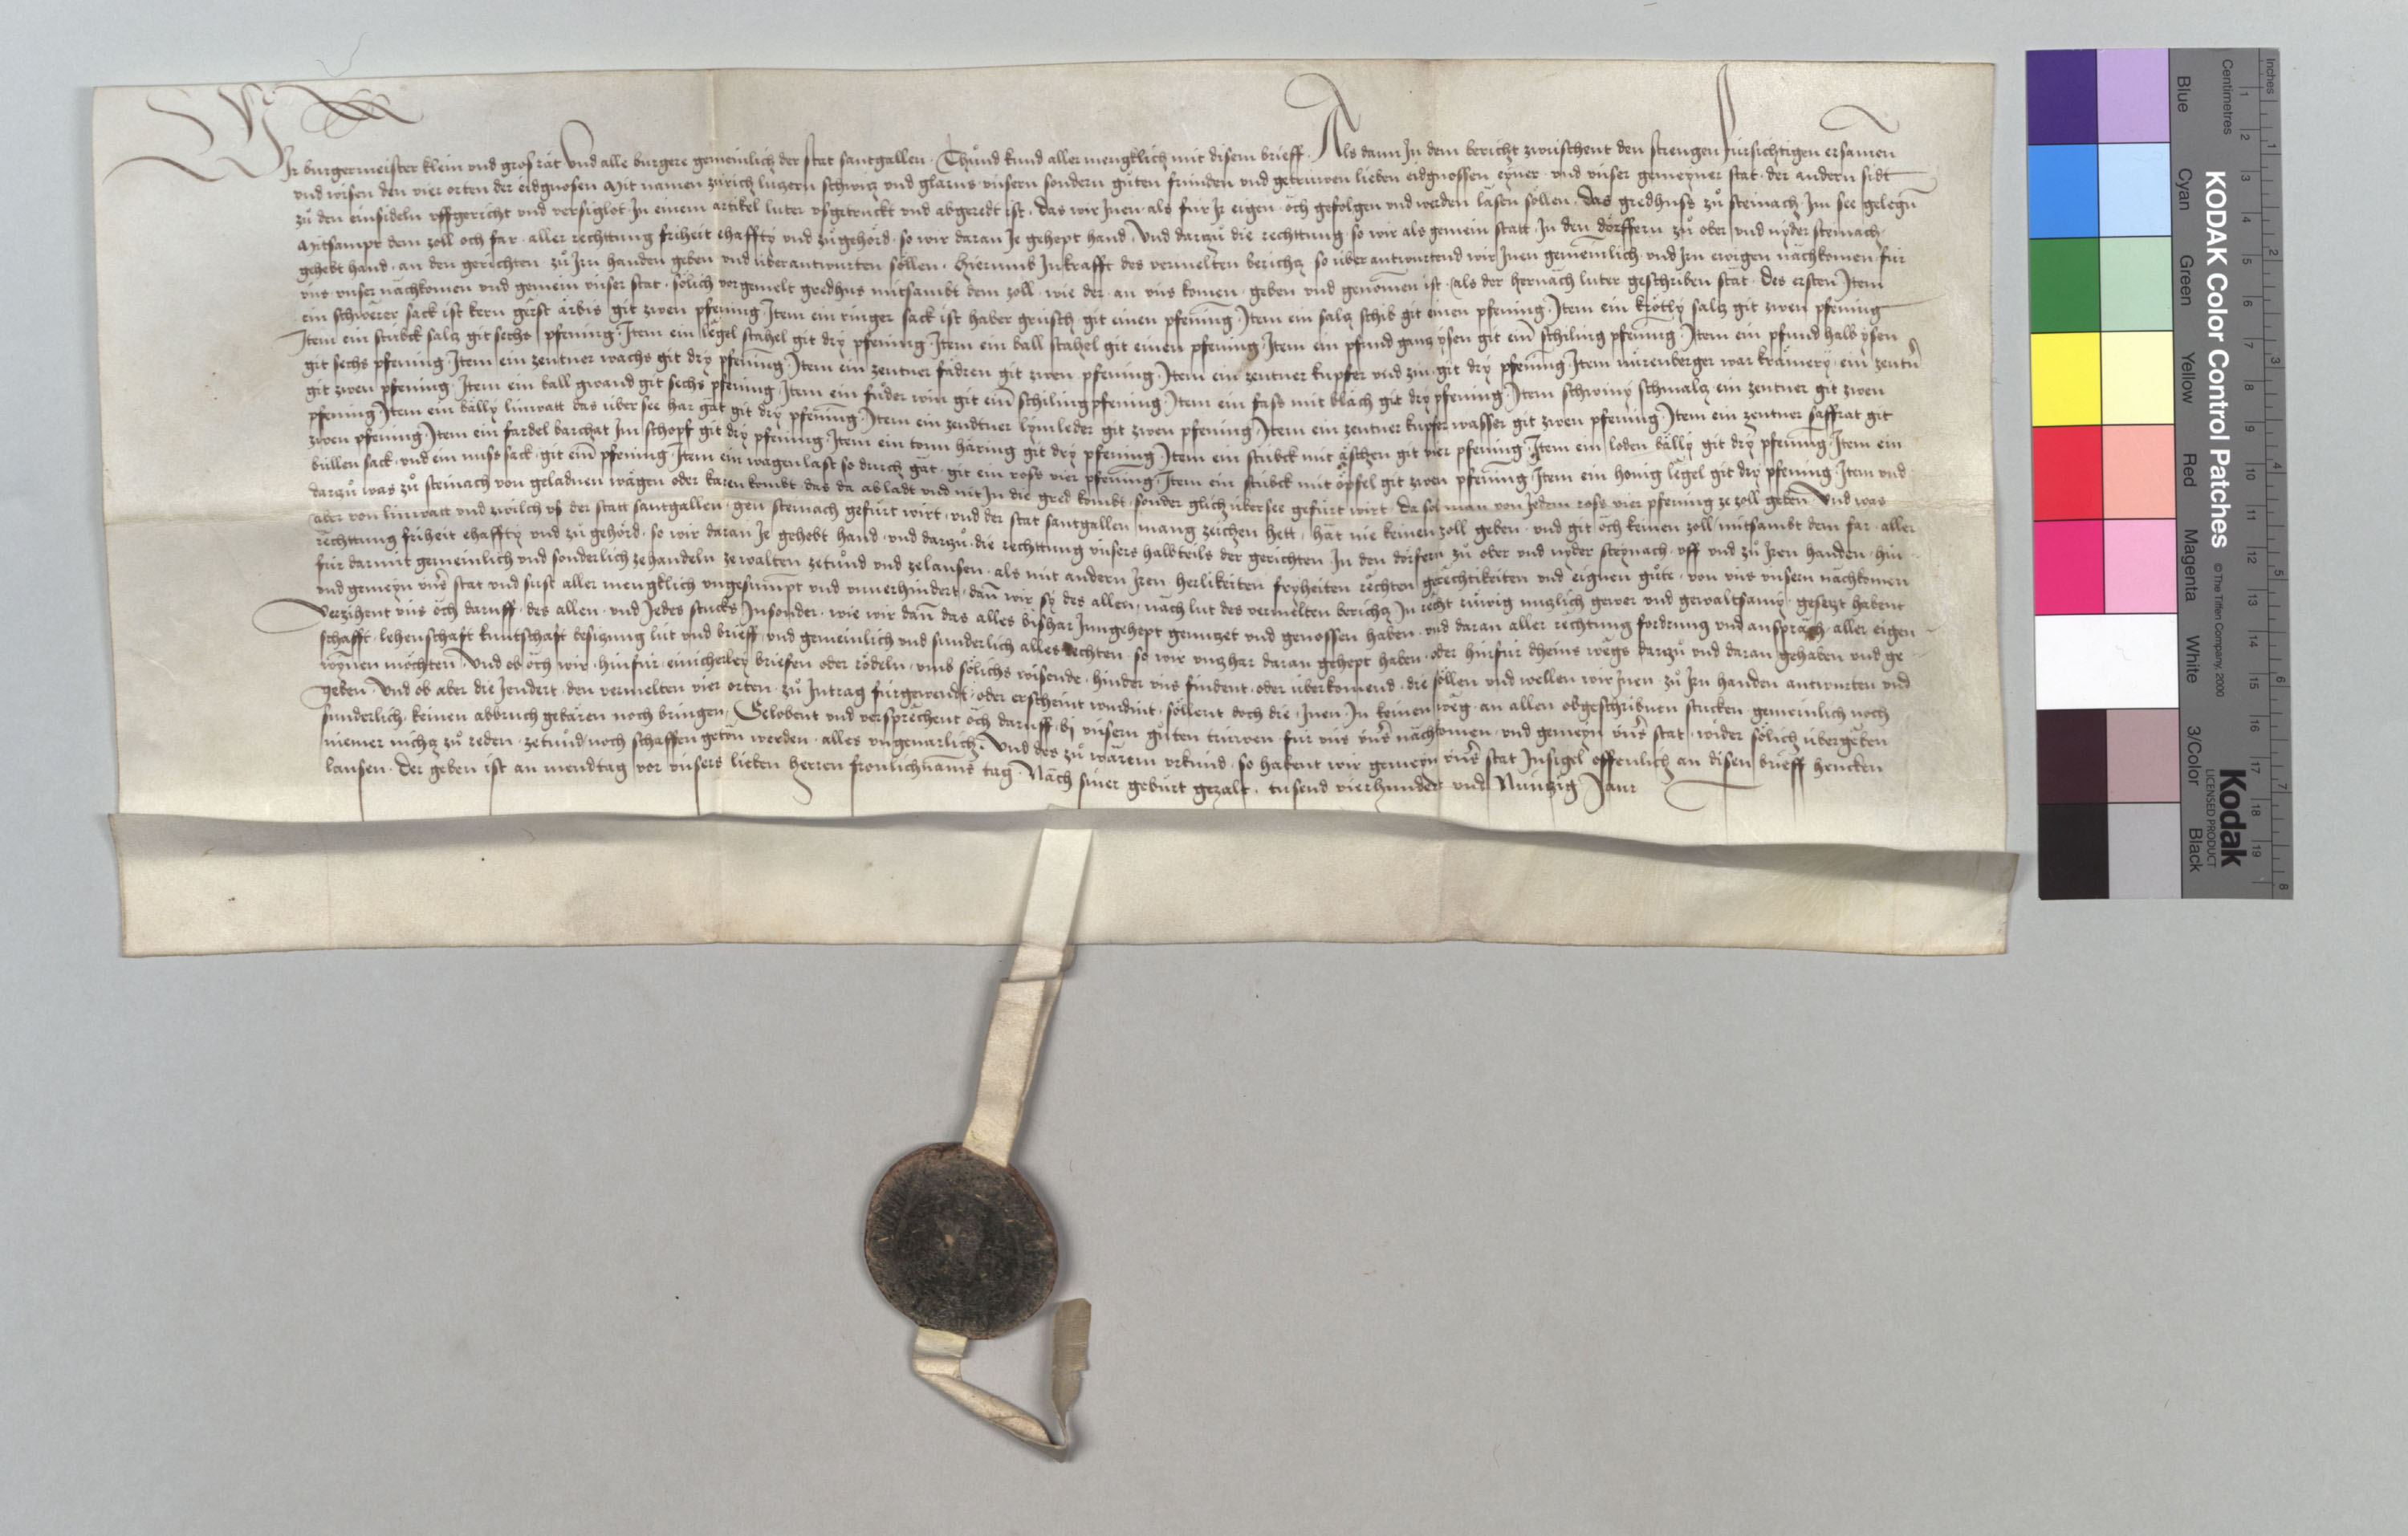 Wir burgermeister klein und gros rät und alle burgere gemeinlich der stat santgallen · Thuond kund aller mengklich mit disem brieff · Als dann in dem bericht zwüschent den strengen fürsichtigen ersamen
und wisen den vier orten der eidgnosen mit namen zürich luzern schwitz und glarus unsern sondern guoten fründen und getrüwen lieben eidgnossen eyner · und unser gemeyner stat · der andern sidt
zuo den einsideln uffgericht und versiglot in einem artikel luter usgetruckt und abgeredt ist · das wir inen als für ir eigen · öch gefolgen und werden läsen söllen · das gredhuss zuo steinach im see gelegn
mitsampt dem zoll och far · aller rechttung friheit ehaffty und zuogehörd · so wir daran je gehept hand · und darzuo die rechttung so wir als gemein statt · in den dörffern zuo ober und nyder steinach
gehebt hand · an den gerichten zuo irn handen geben und überantwurten söllen · Hierumb inkrafft des vermelten berichtz so überantwurtend wir inen gemeinlich und irn ewigen nächkomen für
uns unser nächkomen und gemein unser stat · sölich vorgemelt gredhus mitsambt dem zoll · wie der an uns komen geben und genomen ist · als der hernäch luter geschriben stät · Des ersten Item
ein schwerer sack ist kern gerst ärbis git zwen pfening · Item ein ringer sack ist haber grüsch git einen pfening · Item ein salz schib git einen pfening · Item ein krötly salz git zwen pfening
Item ein stübck salz git sechs pfening · Item ein legel stahel git dry pfening · Item ein ball stahel git einen pfening · Item ein pfund ganz ysen git ein schiling pfening · Item ein pfund halb ysen
git sechs pfening · Item ein zentner wachs git dry pfening · Item ein zentner fädren git zwen pfening · Item ein zentner kupfer und zin git dry pfening · Item nürenberger war krämery · ein zentn
git zwen pfening · Item ein ball gwand git sechs pfening · Item ein fuder win git ein schiling pfening · Item ein fass mit bläch git dry pfening · Item schwiny schmalz ein zentner git zwen
pfening Item ein bälly linwatt das über see har gät git dry pfening · Item ein zendtner lymleder git zwen pfening · Item ein zentner kupfer wasser git zwen pfening · Item ein zentner saffrat git
zwen pfening · Item ein fardel barchat im schopf git dry pfening · Item ein tonn häring git dry pfening · Item ein stübck mit äschen git vier pfening · Item ein loden bälly git dry pfening · Item ein
büllen sack · und ein nuss sack · git ein pfening · Item ein wagenlast so durch gät · git ein ross vier pfening · Item ein stübck mit öpfel git zwen pfening · Item ein honig legel git dry pfening · Item und
darzuo was zuo steinach von geladnen wägen oder karen kombt das da abladt und nit in die gred kombt · sonder glich über see gefürt wirt · da sol man von jedem ross vier pfening ze zoll geben · Und was
aber von linwatt und zwilch us der statt santgallen gen steinach gefürt wirt · und der stat santgallen mang zeichen hett · hät nie keinen zoll geben · und git öch keinen zoll mitsambt dem far · aller
rechttung friheit ehaffty und zuogehörd · so wir daran je gehebt hand · und darzuo · die rechttung unsers halbteils der gerichten · in den dörfern zuo ober und nyder steynach · uff und zuo iren handen · hin
für darmit gemeinlich und sonderlich zehandeln zewalten zetuond und zelaussen · als mit andern iren herlikeiten fryheiten rechten gerechtikeiten und eignen guote · von uns unsern nächkomen
und gemeyn unsr stat und sust aller mengklich ungesumpt und unverhindert · dann wir sy des allen · näch lut des vermelten berichtz in recht rüwig nuzlich gewer und gewaltsamy · gesetzt habent
Verzihent uns öch daruff · des allen · und jedes stucks insonder · wie wir dann das alles bishar inngehept genutzet und genossen haben · und daran aller rechtung fordrung und anspräch · aller eigen
schafft · lehenschaft kuntschaft besizung lüt und brieff · und gemeinlich und sunderlich alles rechten · so wir unzhar daran gehept haben · oder hinfür dheins wegs darzuo und daran gehaben und ge
wynnen möchten · Und ob öch wir · hinfür einicherley briefen oder rödeln · umb sölichs wisende · hinder uns findent · oder überkomend · die söllen und wellen wir inen zuo irn handen antwurten und
geben · Und ob aber die jendert · den vermelten vier orten · zuo intrag fürgewendt oder erscheint wurdint · söllent doch die · inen in keinen weg · an allen obgeschribnen stucken gemeinlich noch
sunderlich · keinen abbruch gebären noch bringen · Gelobent und versprechent öch daruff · bi unsern guoten trüwen für uns unsr nächkomen · und gemeyn unsr stat · wider sölich übergeben
niemer nichtz zuo reden · zetuond noch schaffen getön werden · alles ungevarlich · Und des zuo wärem urkund · so habent wir gemeyn unsr stat insigel offenlich an disen brieff hencken
laussen · Der geben ist an mendtag vor unsers lieben herren fronlichnams tag · Näch siner geburt gezalt · tusend vierhundert und Nüntzig Jaur
KODAK Color Control Patches
© The Tiffen Company, 2000
Kodak
LICENSED PRODUCT
Blue Cyan Green Yellow Red Magenta White 3/Color Black
Inches
1 2 3 4 5 6 7 8
Centimetres
1 2 3 4 5 6 7 8 9 10 11 12 13 14 15 16 17 18 19